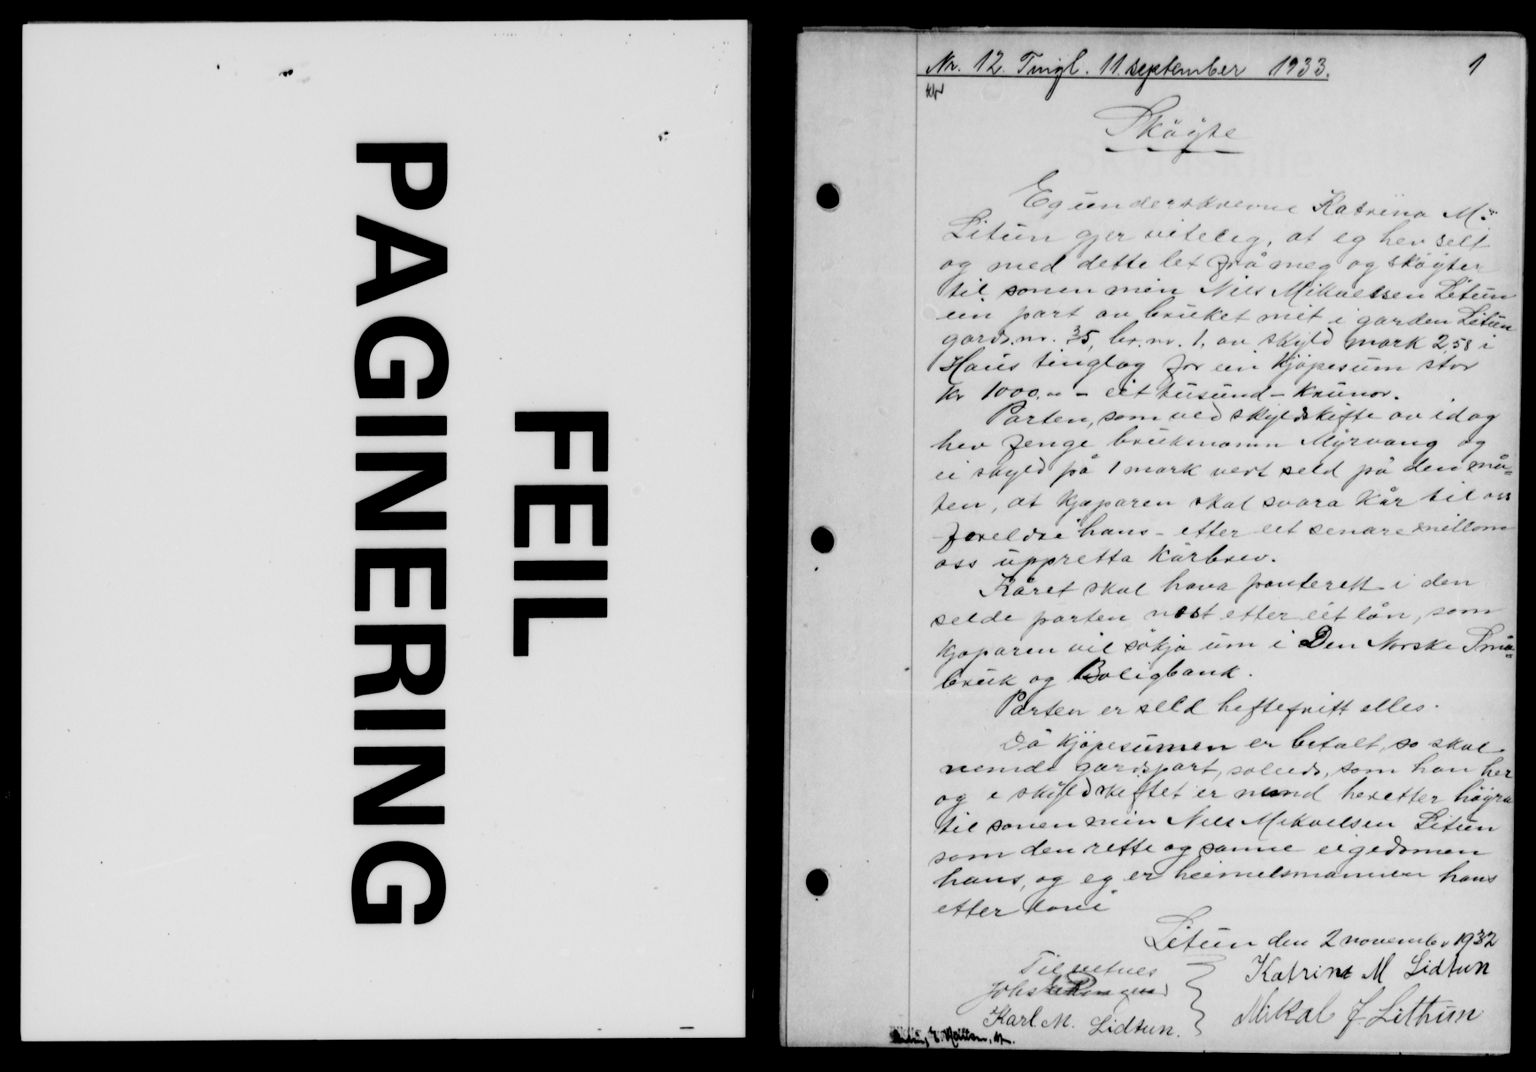 FEIL
PAGINERING
Nr. 12. Tingl. 11 september 1933. 1
Skøyte
Eg underskrevne Katrina M.
Litun gjer viteleg, at eg hev selt
og med dette let frå meg og skøyter
til sonen min Nils Mikaelsen Litun
ein part av bruket mit i garden Litun
gards.nr. 35, br.nr. 1. av skyld mark 2,58 i
Haus tinglag for ein kjøpesum stor
kr 1000.- eit tusund - krunor.
Parten, som ved skyldskifte av idag
hev fenge bruksnamn Myrvang og
ei skyld på 1 mark vert seld på den må=
ten, at kjøparen skal svara kår til oss
foreldri hans - etter eit senare millom
oss uppretta kårbrev.
Kåret skal hava panterett i den
selde parten næst etter eit lån, som
kjøparen vil søkja um i Den Norske Små=
bruk og Boligbank.
Parten er seld heftefritt elles.
Då kjøpesumen er betalt, so skal
nemde gardspart, soleids, som han her
og i skyldskiftet er nemnd heretter høyra
til sonen min Nils Mikaelsen Litun
som den rette og sanne eigedomen
hans, og eg er heimelsmannen hans
etter lovi
Litun den 2 november 1932
Til vitnes
Katrine M Lidtun
Mikal J. Lithun
Karl M. Lidtun.